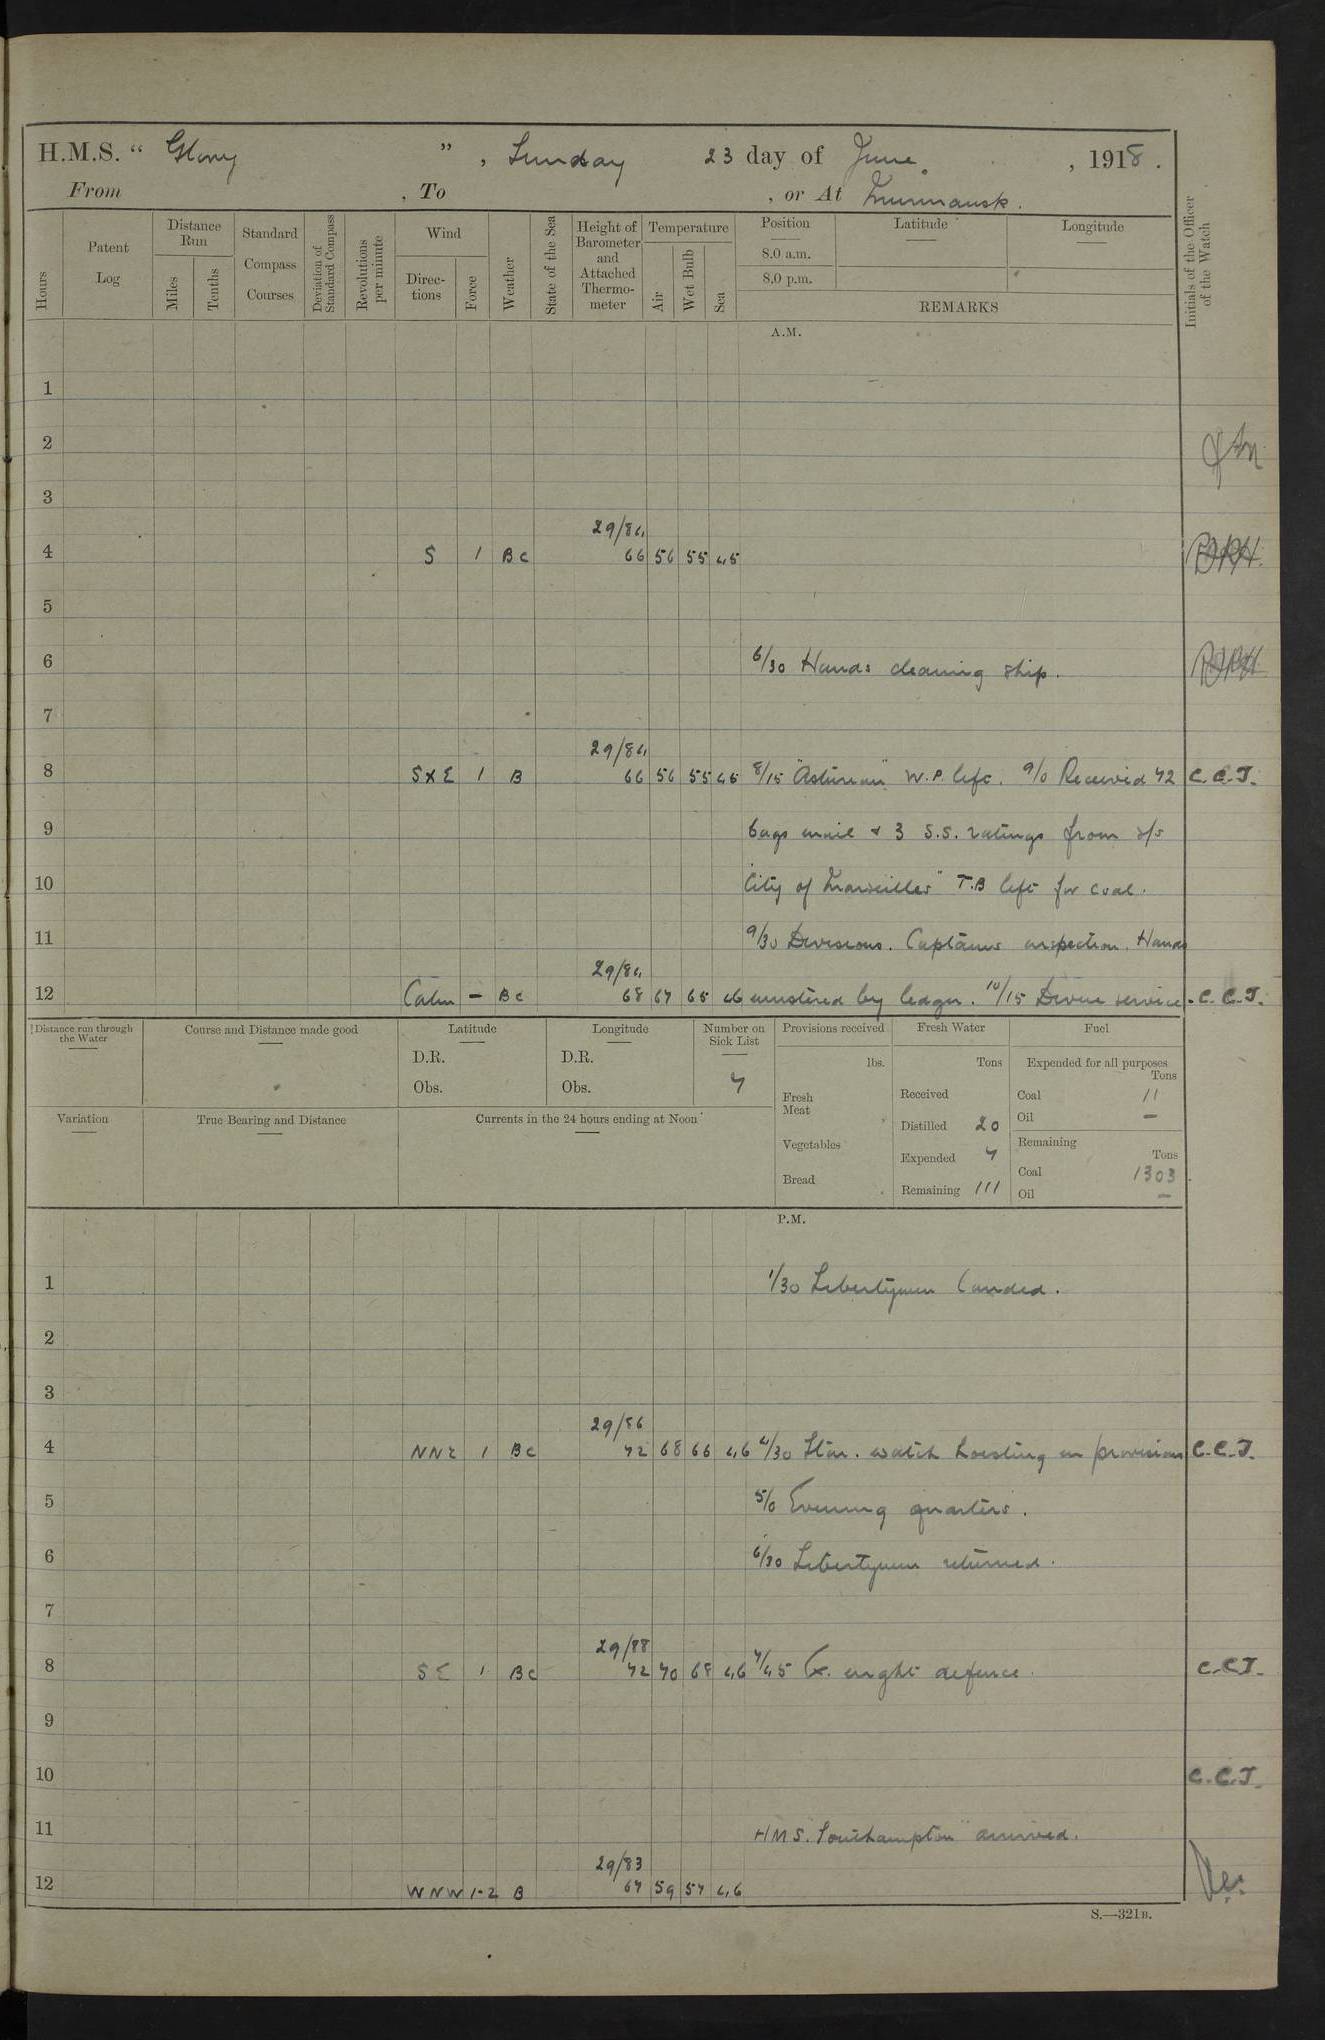 H.M.S. “ Glory ” , Sunday 23 day of June , 1918 .
From , To , or At Murmansk .
Hours
Patent Log
Distance Run
Miles
Tenths
Standard Compass Courses
Deviation of Standard Compass
Revolutions per minute
Wind
Direc- tions
Force
Weather
State of the Sea
Height of Barometer and Attached Thermo- meter
Temperature
Air
Wet Bulb
Sea
Position
8.0 a.m.
8.0 p.m.
Latitude
Longitude
REMARKS
Initials of the Officer of the Watch
A.M.
1
2
3
29/84
4 S 1 Bc 66 56 55 45
5
6 6/30 Hands cleaning ship.
7
29/84
8 SxE 1 B 66 56 55 45 8/15 "Asturian" W.P. left. 9/0 Received 42 C.C.J.
9 bags mail & 3 S.S. ratings from s/s
10 "City of Marseilles" T.B left for coal.
11 9/30 Divisions. Captains inspection. Hands
29/84
12 Calm – Bc 68 67 65 46 mustered by ledger. 10/15 Divine service. C.C.J.
Distance run through the Water
Course and Distance made good
Latitude
D.R.
Obs.
Longitude
D.R.
Obs.
Number on Sick List
7
Provisions received
lbs.
Fresh Meat
Vegetables
Bread
Fresh Water
Tons
Received
Distilled 20
Expended 7
Remaining 111
Fuel
Expended for all purposes
Tons
Coal 11
Oil –
Remaining
Tons
Coal 1303
Oil –
Variation
True Bearing and Distance
Currents in the 24 hours ending at Noon
P.M.
1 1/30 Libertymen landed.
2
3
29/86
4 NNE 1 Bc 72 68 66 46 4/30 Star. watch hoisting in provisions C.C.J.
5 5/0 Evening quarters.
6 6/30 Libertymen returned.
7
29/88
8 SE 1 Bc 72 70 68 46 7/45 Ex. night defence. C.C.J.
9
10 C.C.J.
11 H M S. "Southampton" arrived.
29/83
12 WNW 1-2 B 67 59 57 46
S.—321B.